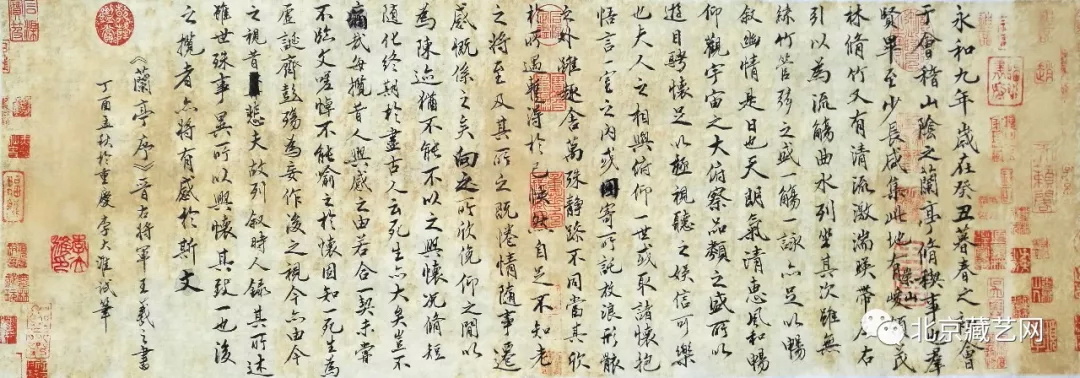 永和九年歲在癸丑暮春之初會
于會稽山陰之蘭亭脩稧事也羣
賢畢至少長咸集此地有崇山峻領茂
林脩竹又有清流激湍暎帶左右
引以為流觴曲水列坐其次雖無
絲竹管弦之盛一觴一詠亦足以暢
敘幽情是日也天朗氣清惠風和暢
仰觀宇宙之大俯察品類之盛所以
遊目騁懷足以極視聽之娛信可樂
也夫人之相與俯仰一世或取諸懷抱
悟言一室之內或因寄所託放浪形骸
之外雖趣舍萬殊靜躁不同當其欣
於所遇蹔得於己怏然自足不知老
之將至及其所之既惓情隨事遷
感慨係之矣向之所欣俛仰之間以
為陳迹猶不能不以之興懷況脩短
隨化終期於盡古人云死生亦大矣豈不
痛哉每攬昔人興感之由若合一契未嘗
不臨文嗟悼不能喻之於懷固知一死生為
虛誕齊彭殤為妄作後之視今亦由今
之視昔悲夫故列敘時人錄其所述
雖世殊事異所以興懷其致一也後
之攬者亦將有感於斯文
《蘭亭序》晉右將軍王羲之書
丁酉孟秋於重慶李大淮試筆
北京藏艺网